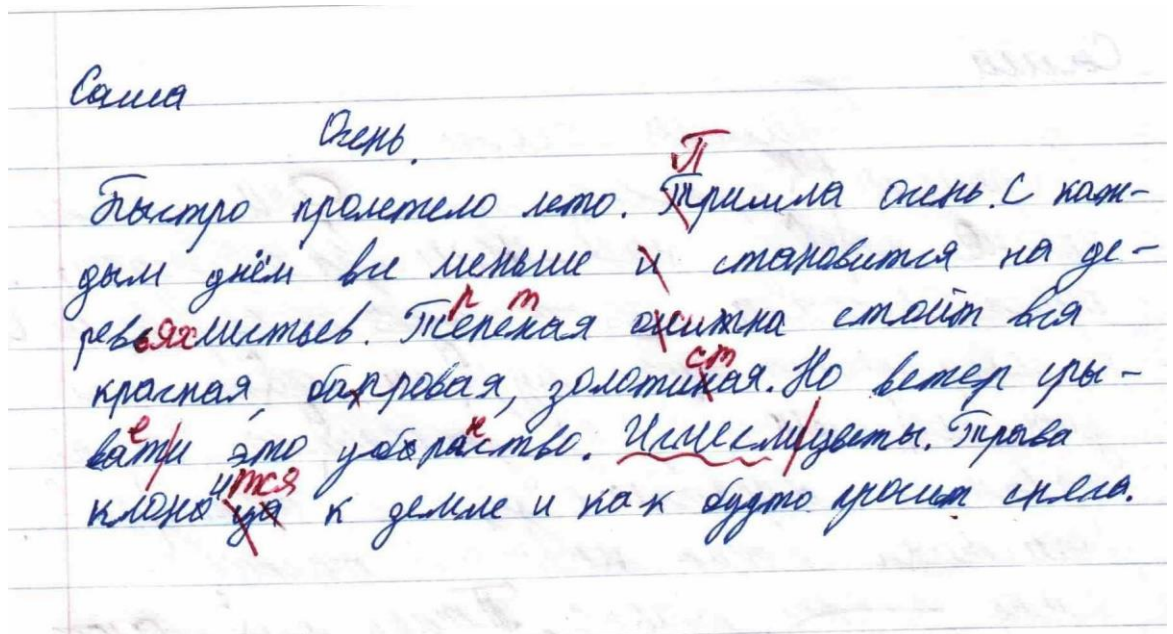 Саша
Осень.
Быстро пролетело лето. Пришла осень. С каж-
дым днём все меньше и становится на де-
ревьях листьев. стоит вся
красная, золотистая. Но ветер сры-
вает это Исчесли цветы. Трыва
клонится к демле и как будто просит снега.